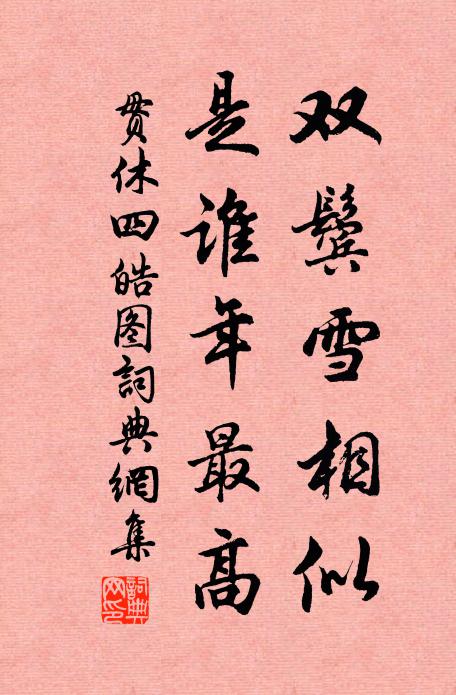 双鬓雪相似
是谁年最高
贯休四皓图詞典網集
詞典網印